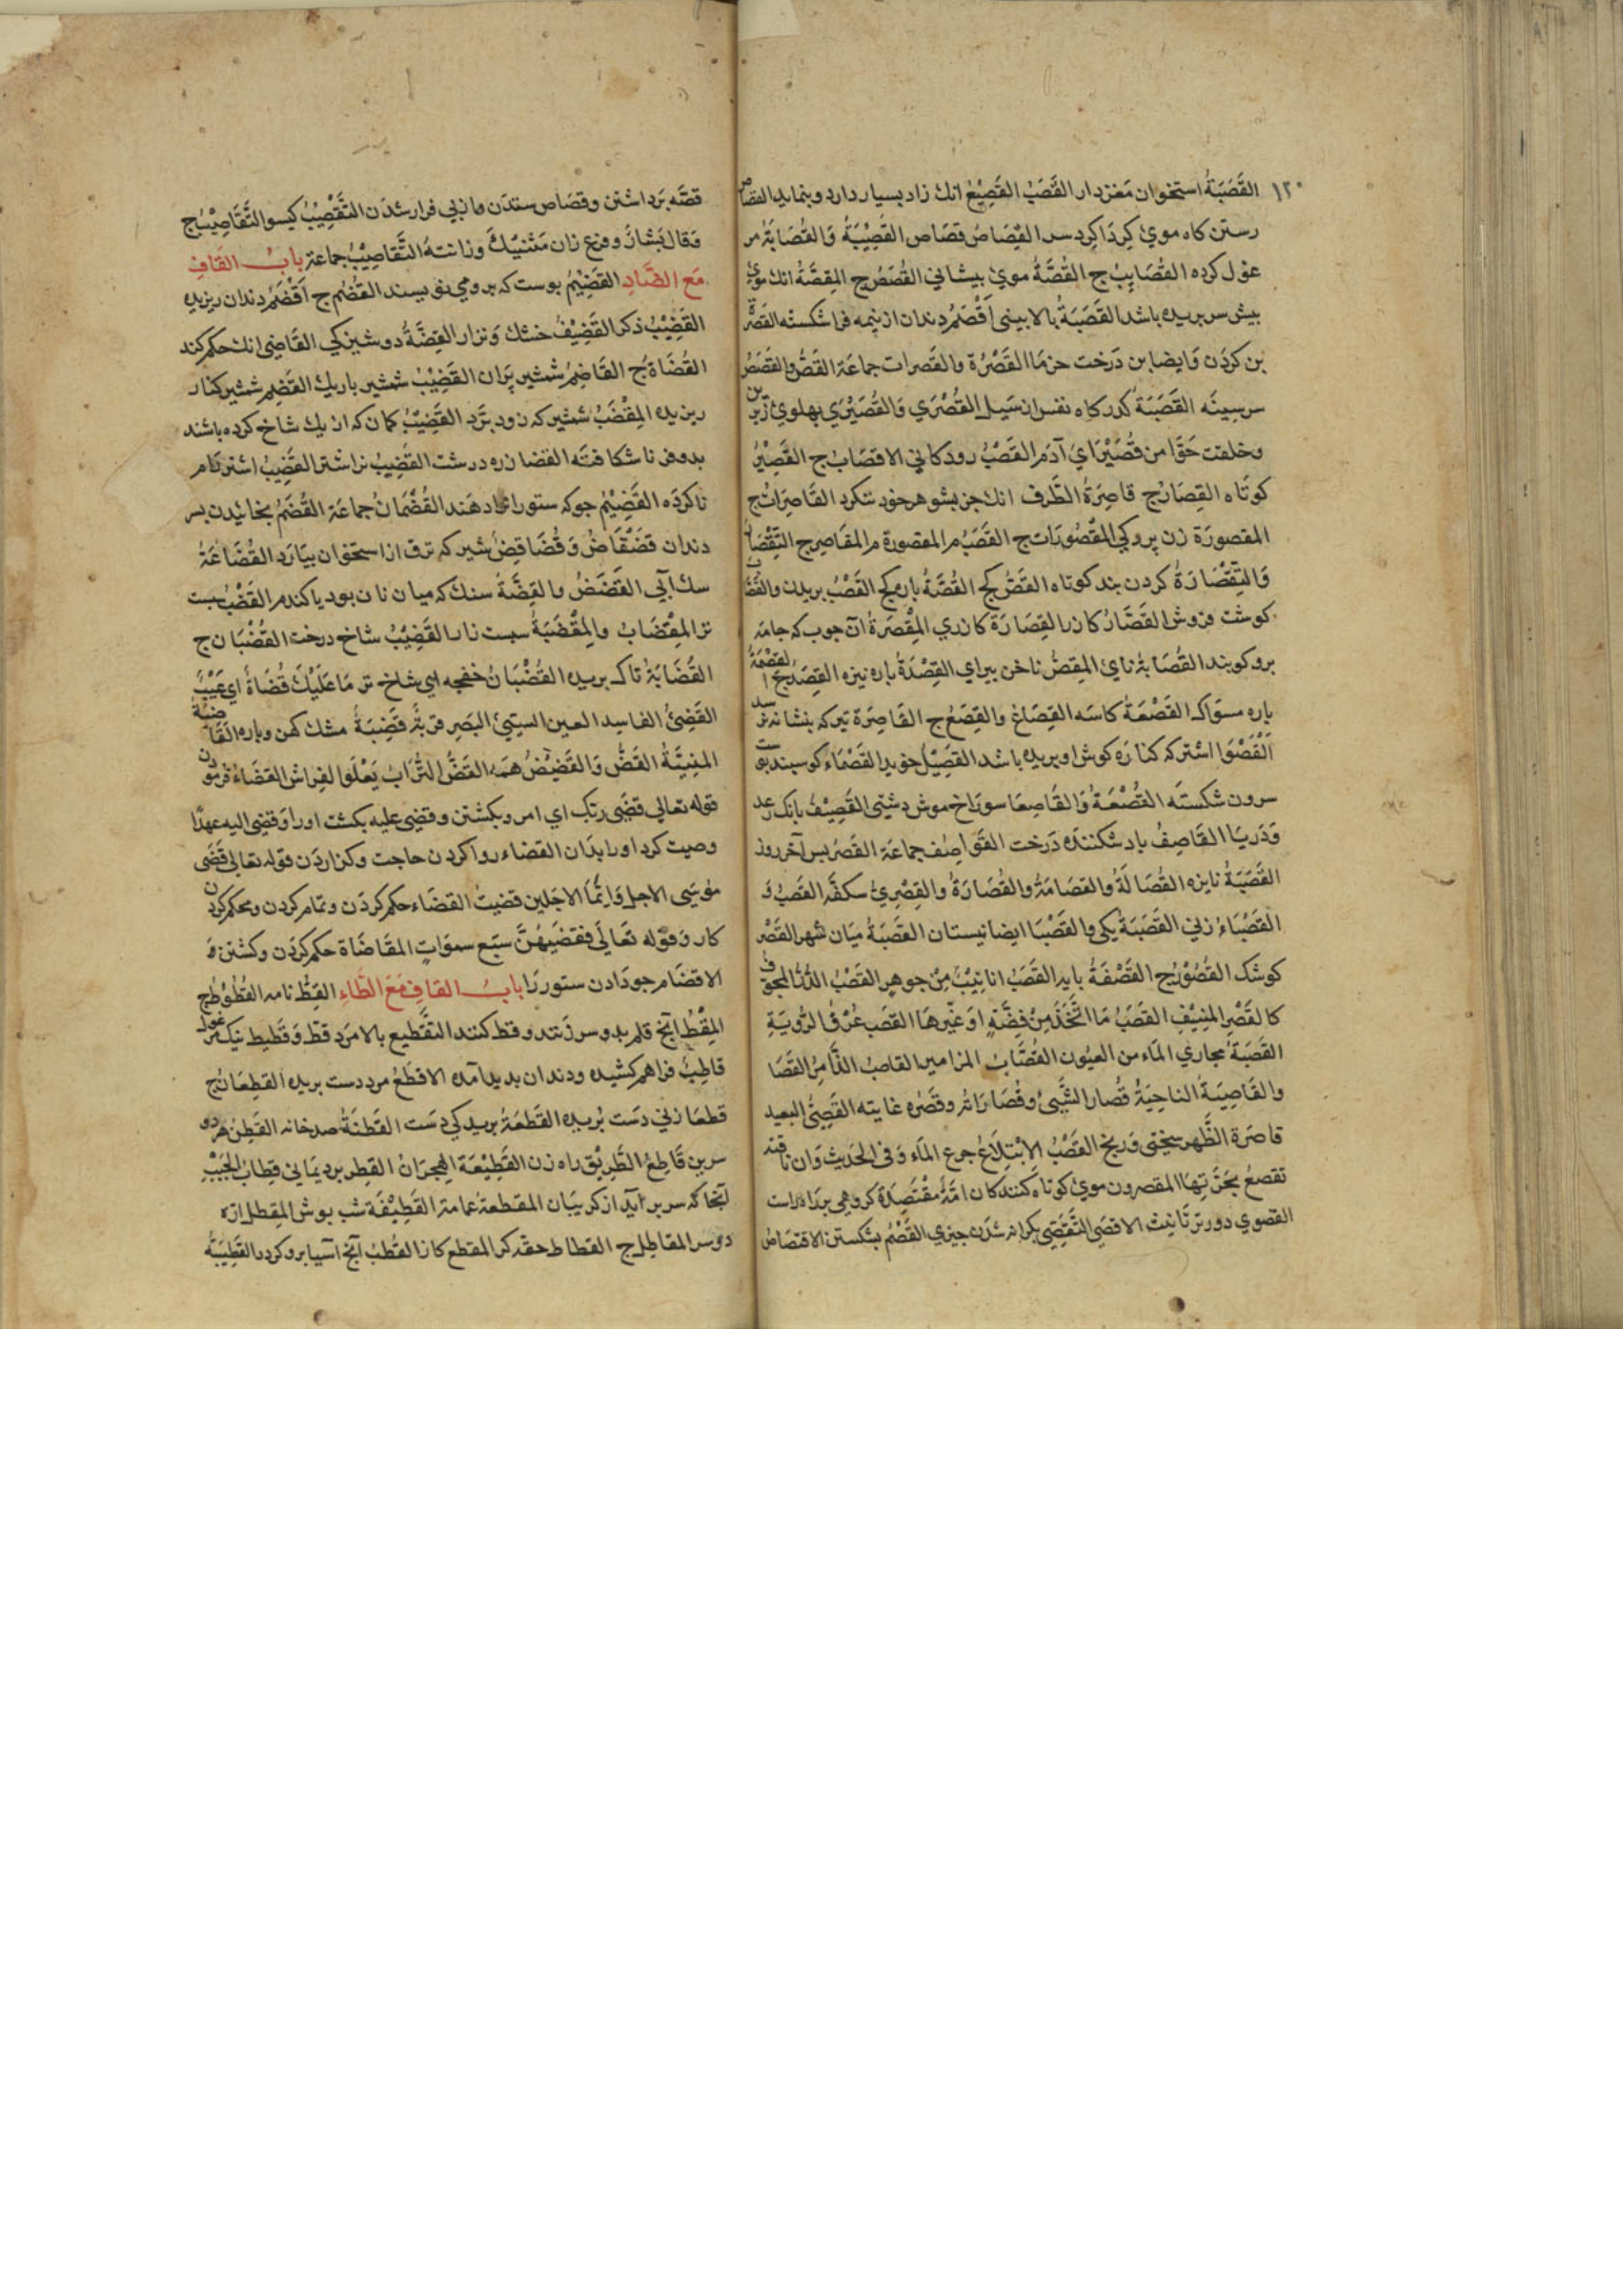 ١٢٠ القَصَبَةُ استخوان مَغزدار القَصَبُ القَصِيْعُ انك زاد بسيار دارد وبنمايد القصاص
رستن كاه موئ كِردَاكِرد سر القِصَاصُ قصَاص القَصِيْبَةُ وَالقُصَابَةُ مر
غول كرده القُصَايِبُ ج القُصَّةُ موئ بيشاني القُصَصُ ج المِقصَّةُ انك موئ
بيش سر بريده باشد القَصَبَةُ بالا بينى اَقْصَمُ دندان از نيمه فرا شكسته القَصَرُ
بن كردَن وَايضا بن دَرخت خرمَا القَصَرَة والقَصرات جماعَة القَصُّ والقَصَصُ
سر سينَه القَصَبَة كذر كاه نفس ان سَيل القُصْرَي وَالقُصَيْرَي بهلوئ زَبرين
وخلقت حَوّا من قُصَيْرَاي آدَم القُصْبُ رودكاني الاقصَابُ ج القَصِيْرُ
كوتَاه القِصَارُ ج قاصِرَةُ الطَّرف انك جز بشوهر خود ننكرد القَاصِرَاتُ ج
المقصورَة زن پروكي المَقْصُورَات ج القَصَبُ م المقصورة م المقَاصِر ج التِقصَارُ
وَالتِقْصَارَةُ كردن بند كوتاه القَصُّ كج القُصَّةُ باره كج القَصْبُ بريدن والقَصَّابُ
كوشت فروش القَصَّارُ كازر القِصَارَة كازري المِقْصَرَةُ آن چوب كه جامَه
بروكوبند القُصَابَة ناي المِقصُّ ناخن بيراي القِصْدَةُ باره نيزه القِصَدُ ج القِصْمَةُ
باره مسوَاك القَصْعَةُ كاسَه القِصَاعُ والقِصَعُ ج القَاصِرَة تير كه بنشانه نرسد
القَصْوَا اشتر كه كنارَه كوش او بريده باشد القَصِيْلُ خويد القَصْمَاء كوسبند
سرون شكسته القُصْعَةُ وَالقَاصِعَا سورَاخ موش دشتى القَصِيْفُ بانك رعد
وَدَريَا القَاصِفُ باد شكننده دَرخت القَوَاصِف جماعَة القَصْرُ بس آخر روز
القَصَبَةُ نايزه القُصَالَةُ والقصَامَةُ والقُصَارَةُ والقِصْرِيُ سكفَه القَصَبُ ن
القَصْبَاءُ زني القَصَبَةُ يكى والقَصْبَا ايضا نيستان القصَبَةُ ميَان شهر القَصْرُ
كوشك القُصُوْرُ ج القَصْفَةُ بايه القَصَبُ انابِيْبُ مِنْ جوهرٍ القَصْبُ الدُّرُّ المجوف
كالقَصْرِ المنِيْفِ القَصَبُ مَا اتُّخِذَ مِنْ فِضَّةٍ اوَ غَيْرِهَا القصَب عُرُوْقُ الرُّويَةِ
القَصَبَةُ مجارِيُ المَاء من العيُون القُصَّابُ المزامير القاصِبُ الزَّامِرُ القَصَا
والقَاصِيَةُ الناحِيَةُ قُصَار الشَّيئ وقُصَارَاهُ وقَصْرُه غايته القَصِيُّ البعيد
قاصَرَة الظَّهر سختى وَرنج القَصْبُ الاِبْتِلَاعُ جرع المَاء وَفى الحَدِيث وَان ناقته
تقصعُ بجَرَّتِهَا المقصرون موئ كوتاه كنندكان امّةٌ مُقْتَصِدَة كروهى بَر راه راست
القصوي دورتر تَانيث الاقصَى التَّقَصِّي بكرانه شدَن چيزي القَصْمُ بشكستن الاقتصَاصُ
قصَّه بَرداشتن وقصَاص ستدَن وازبي فرار شدَن التَّقْصِيْبُ كيسو التَّقَاصِيْبُ ج
وَقال بَشارَ وفرع زان مَتْنيْكَ وزانته التَّقاصِيْبُ جماعَة بابُ القَافِ
مَعَ الضَّادِ القَضِيْمُ بوست كه بروهمي نويسند القُضُم ج اَقْضَمُ دندان ريزيده
القَضِيْبُ ذكر القَضِيْفُ خشك وَنزار القِضَّةُ دوشيزكي القَاضِيُ انك حكم كند
القُضَاة ج القَاضِبُ شمشير بُرَان القَضِيْبُ شمشير باريك القَضِم شمشير كنار
ريزيده المِقْضَبُ شمشير كه زود بُرَّد القَضِيْبُ كمان كه از يك شاخ كرده باشند
بدو فر ناشكافته القضا زره درشت القَضِيبُ نر اشتر القَضِيبُ اشتر رام
ناكرده القَضِيْمُ جو كه ستور را دهند القُضْمَانُ جماعَة القُضَمُ بخائيدن بسر
دندان قضْقَاضُ وَقُضَاقِضُ شير كه ترق از استخوان بيَارَد القُضَاعَةُ
سك آبي القَضَضُ والقِضَّةُ سنك كه ميان نان بود يا كندم القَضْبُ سبست
تر المِقضَابُ والمِقْضَبَةُ سبست زار القَضِيْبُ شاخ درخت القُضْبَان ج
القُضَابَةُ تاك بريده القُضْبَانُ خفجه اي شاخ تر مَا عَلَيْكَ قُضَاةٌ اي عَيْبٌ
القَضِئُ الفاسد العين السيّئ البَصَرِ قربَةُ قَضِئَةٌ مشك كهن وباره القَاضِيَةُ
المنِيَّةُ القَضُّ وَالقَضِيْضُ همَه القَضُّ التُّرَابُ يَعْلُوا الفراش القضَاءُ فرمودن
قوله تعالي قضَى ربّك اي امر وبكشتن وقضى عليه بكشت اورا وَقضى اليه عهدًا
وصيت كرد اورا بدَان القضاء روا كردن حاجت وكزاردَن قوله تعالى قَضَى
مُوسَى الاجل وَايَّمَا الاجَلين قضيتُ القضَاء حكم كردَن وتمام كردن ومحكم كردن
كار وَقوله تعَالَى فقضَيهُنَّ سبَع سموَاتٍ المقَاضَاة حكم كردَن وكشتن وَ
الاقضَام جودَادن ستور رَا بابُ القافِ مَعَ الطَّاءِ القِطُّ نامه القُطُوْط ج
المِقْطُّ آنچ قلم بدو سر زَنند وقط كنند القَطِيع بالا مرد قط وَقَطِيط نيك مرغول
قاطِبُ فراهم كشيده ودندان بديد آمده الاقطعُ مرد دست بريده القطعَانُ ج
قطعَا زني دَست بُريده القَطعَةُ بريدكي دَست القَطنَةُ صد خانه القَطِنُ هر دو
سرين قَاطِعُ الطَّرِيْقِ راه زن القَطِيْعَة الهِجرَانُ القِطِر برد يمَانى قِطابُ الجَيْبِ
آنجا كه سر بر آيد از كريبَان المقطعةُ عمامه القَطِيْفَة شب بوش المِقطل ارّه
دوسر المقاطِل ج القطاط حقه كر المقطع كازر القُطْبُ آنچ آسيا بروكردد القَطِيْبَةُ